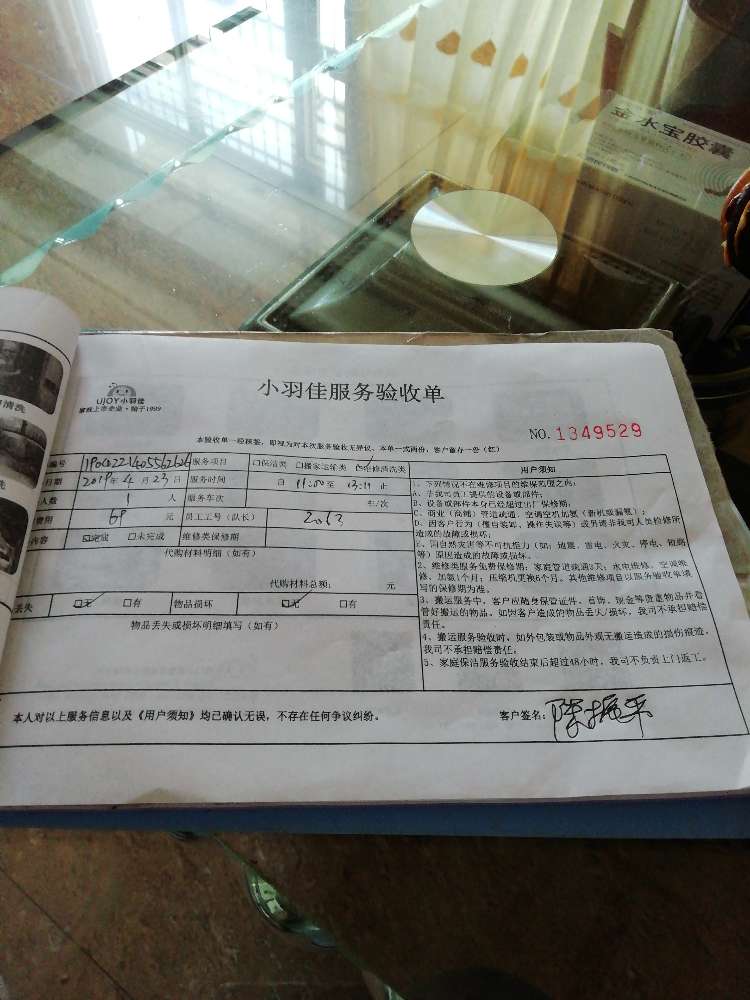 金水宝胶囊
清洗
洗
UJOY小羽佳
家政上市企业·始于1999
小羽佳服务验收单
本验收单一经顾签，即视为对本次服务验收无异议、本单一式两份，客户留存一份（红）
NO.1349529
编号 服务项目 □保洁类 □搬家运输类 ☑维修清洗类
日期 2019年4月23日 服务时间 自 11:00至 13:11止
人数 1 人 服务车次 车/次
费用 69 元 员工工号（队长） 2063
内容 ☑完成 □未完成 维修类保修期
代购材料明细（如有）
代购材料总额： 元
丢失 ☑无 □有 物品损坏 ☑无 □有
物品丢失或损坏明细填写（如有）
用户须知
1、下列情况不在维修项目的维保范围之内：
A、非我司员工提供的设备或部件；
B、设备或部件本身已经超过出厂保修期；
C、商业（商铺）管道疏通、空调空机加氨（新机或漏氨）；
D、因客户行为（擅自装卸、操作失误等）或另请非我司人员检修所
造成的故障或损坏；
E、因自然灾害等不可抗能力（如：地震、雷电、火灾、停电、短路
等）原因造成的故障或损坏。
2、维修类服务免费保修期：家庭管道疏通3天；水电维修、空调维
修、加氨1个月；压缩机更换6个月。其他维修项目以服务验收单填
写的保修期为准。
3、搬运服务中，客户应随身保管证件、首饰、现金等贵重物品并看
管好搬运的物品，如因客户造成的物品丢失/损坏，我司不承担赔偿
责任。
4、搬运服务验收时，如外包装或物品外观无搬运造成的损伤痕迹，
我司不承担赔偿责任。
5、家庭保洁服务验收结束后超过48小时，我司不负责上门返工。
本人对以上服务信息以及《用户须知》均已确认无误，不存在任何争议纠纷。
客户签名：陈振平